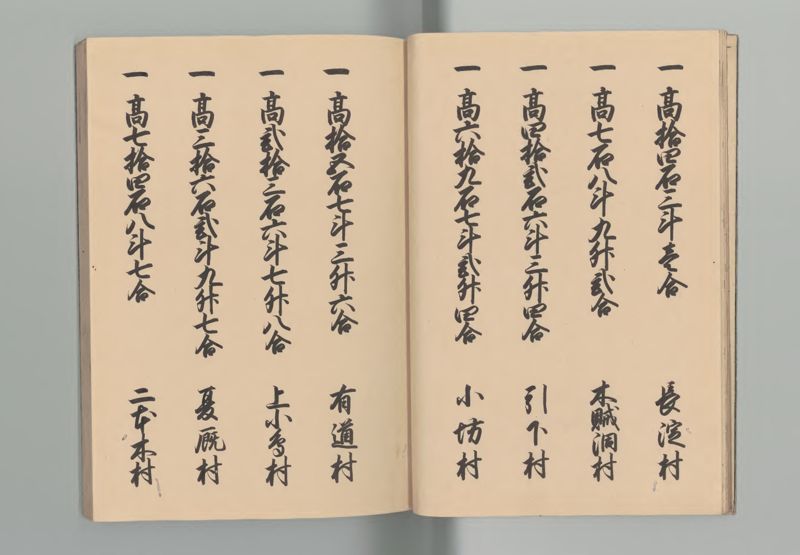 一 高拾四石三斗壱合 長淀村
一 高七石八斗九升弐合 木賊洞村
一 高四拾弐石六斗三升四合 引下村
一 高六拾九石七斗弐升四合 小坊村
一 高拾五石七斗三升六合 有道村
一 高弐拾三石六斗七升八合 上小鳥村
一 高三拾六石弐斗九升七合 夏厩村
一 高七拾四石八斗七合 二本木村